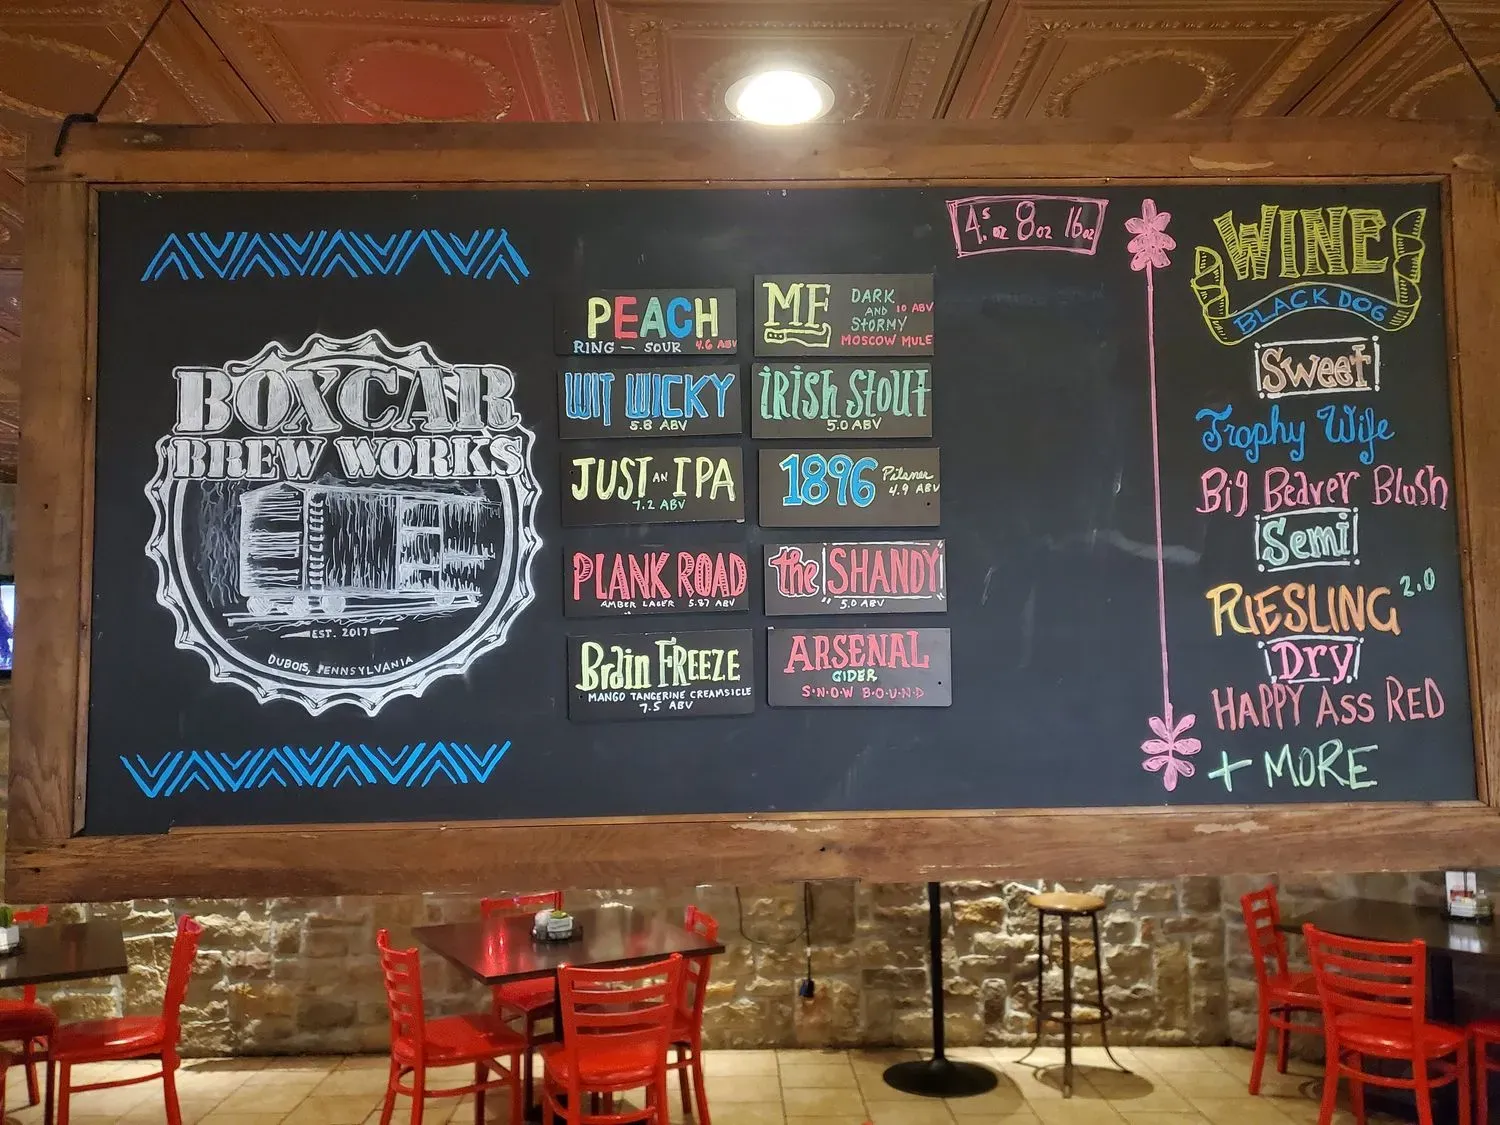 BOXCAR
BREW WORKS
EST. 2017
DUBOIS, PENNSYLVANIA
PEACH
RING — SOUR 4.6 ABV
WIT WICKY
5.8 ABV
JUST AN IPA
7.2 ABV
PLANK ROAD
AMBER LAGER 5.87 ABV
Brain FREEZE
MANGO TANGERINE CREAMSICLE
7.5 ABV
MF
DARK
AND 10 ABV
STORMY
MOSCOW MULE
iRISh Stout
5.0 ABV
1896 Pilsner
4.9 ABV
the SHANDY
5.0 ABV
ARSENAL
CIDER
S·N·O·W B·O·U·N·D
4.5 oz 8 oz 16 oz
WINE
BLACK DOG
Sweet
Trophy Wife
Big Beaver Blush
Semi
RIESLING 2.0
Dry
HAPPY ASS RED
+ MORE